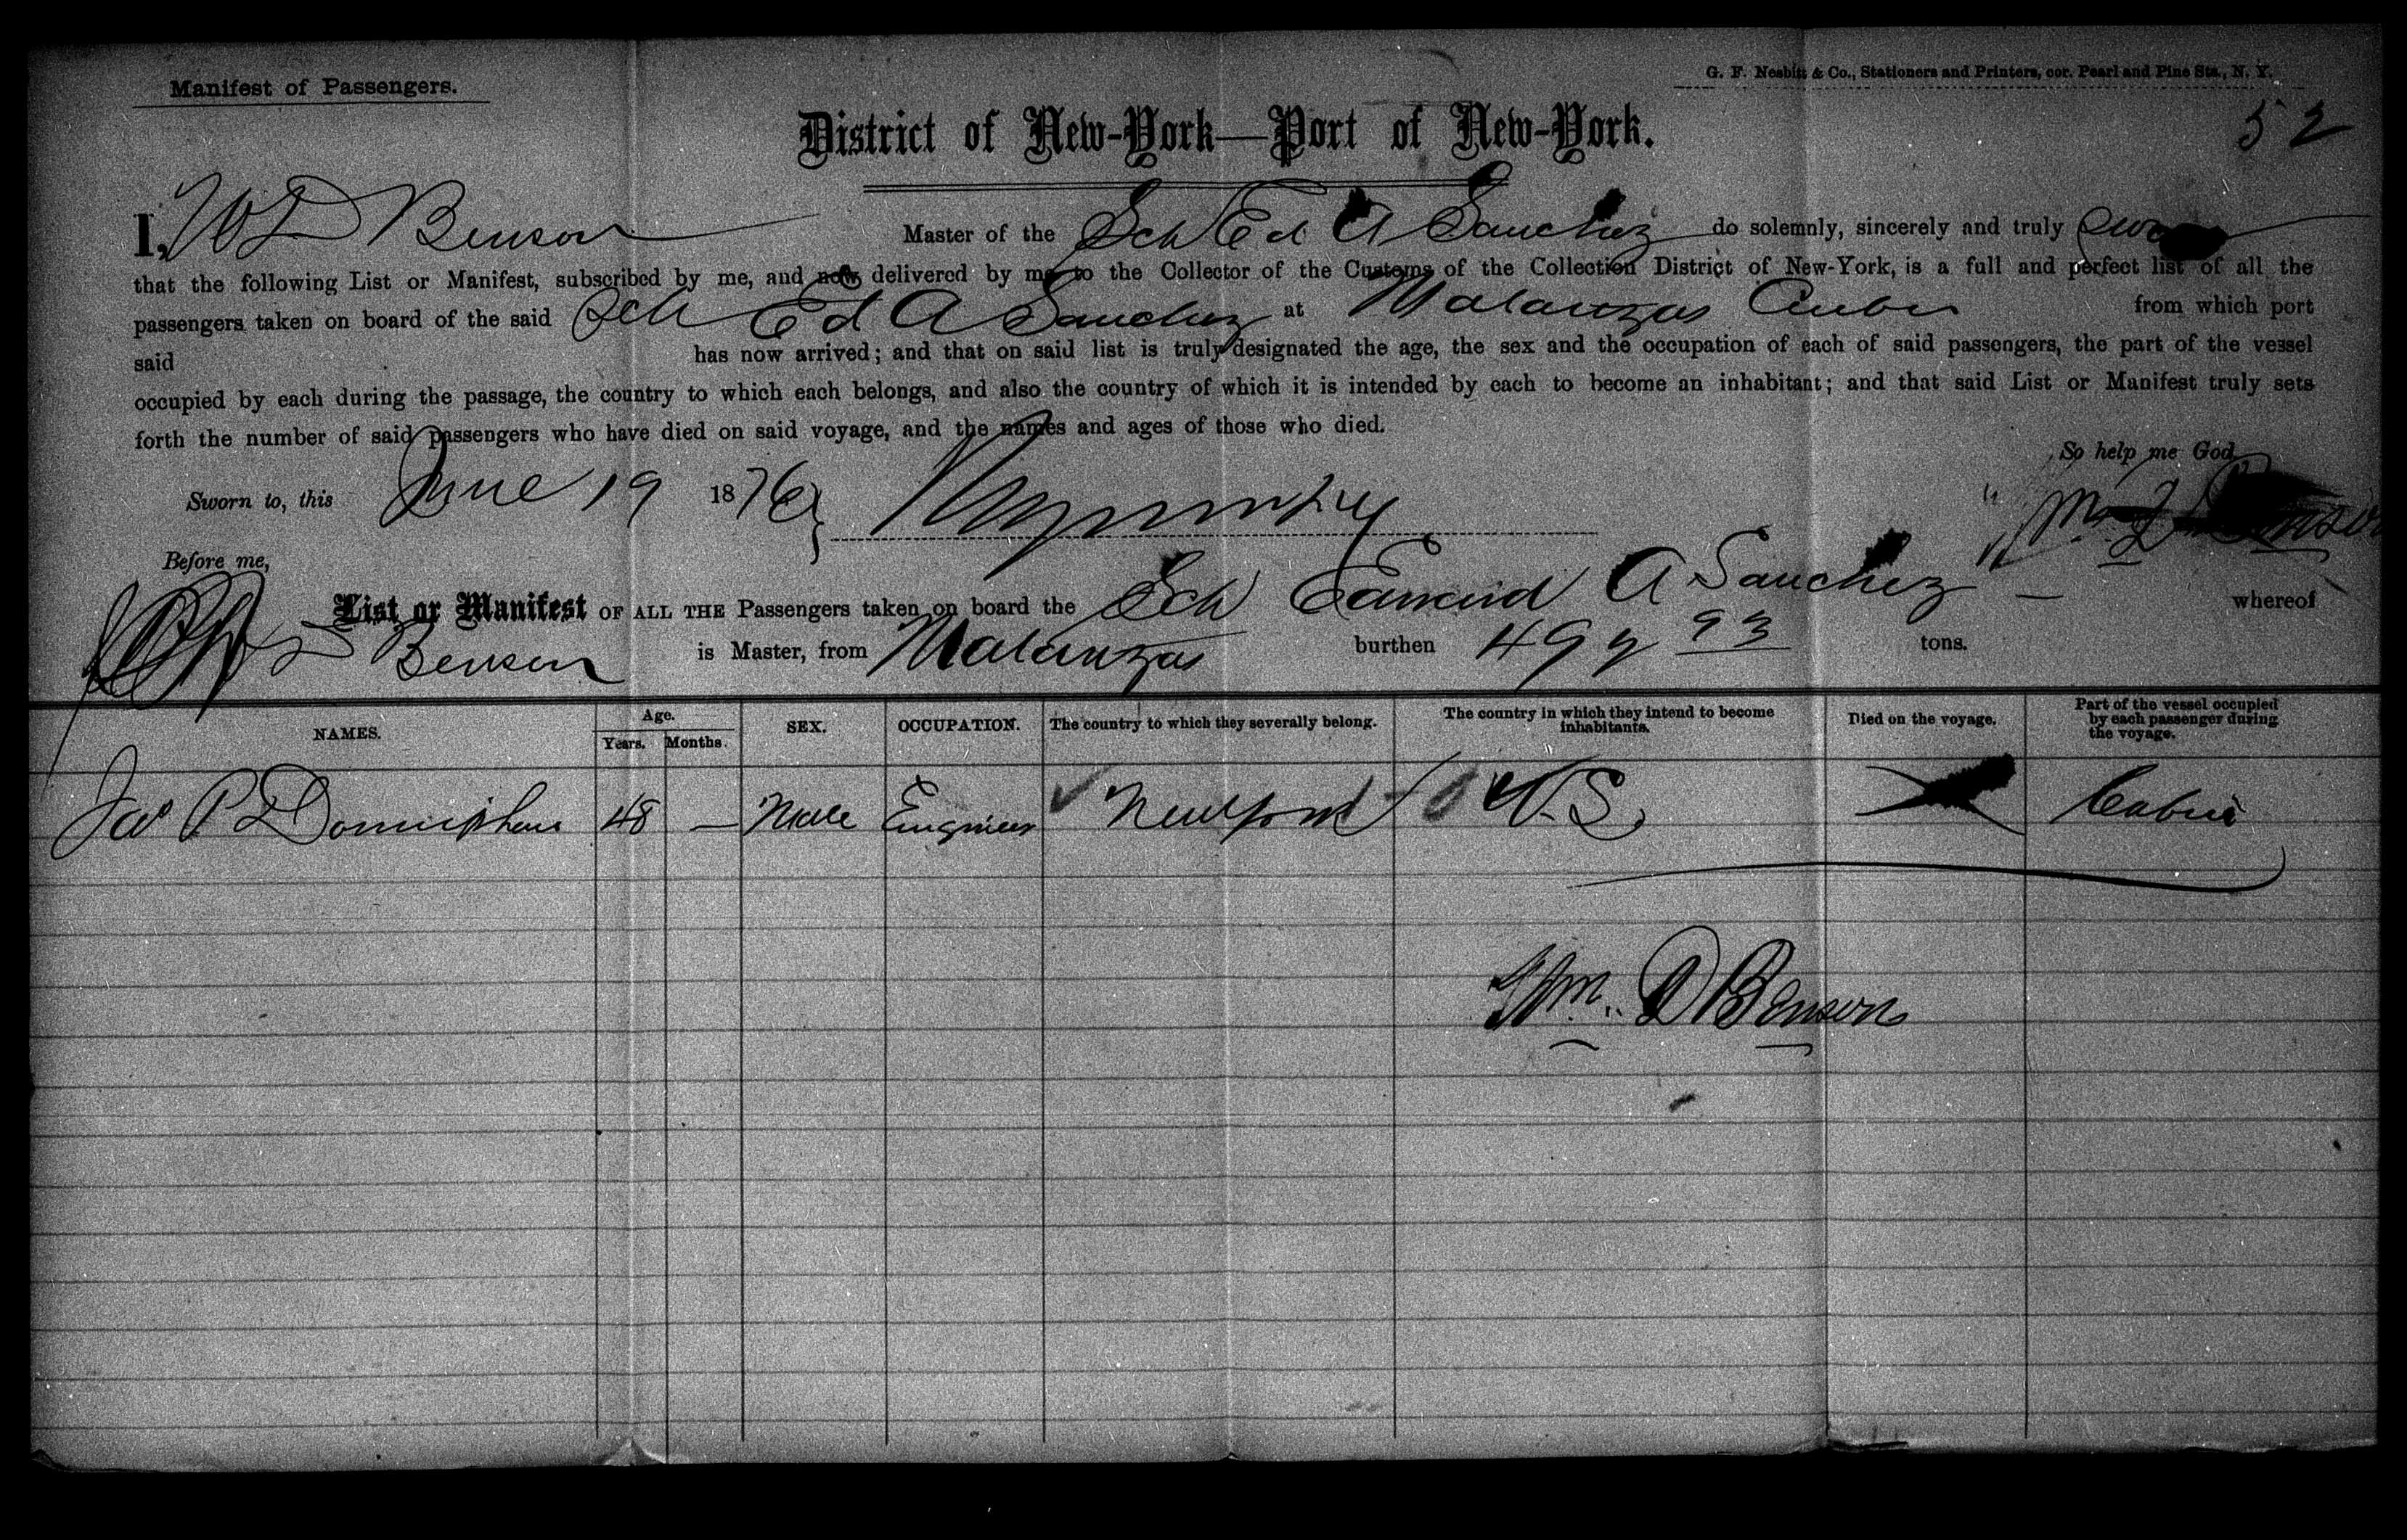 Manifest of Passengers.
G. F. Nesbitt & Co., Stationers and Printers, cor. Pearl and Pine Sts., N. Y.
52
District of New-York—Port of New-York.
I, W D Benson Master of the Sch Ed A Sanchez do solemnly, sincerely and truly
that the following List or Manifest, subscribed by me, and now delivered by me to the Collector of the Customs of the Collection District of New-York, is a full and perfect list of all the
passengers taken on board of the said Sch Ed A Sanchez at Matanzas Cuba from which port
said has now arrived; and that on said list is truly designated the age, the sex and the occupation of each of said passengers, the part of the vessel
occupied by each during the passage, the country to which each belongs, and also the country of which it is intended by each to become an inhabitant; and that said List or Manifest truly sets
forth the number of said passengers who have died on said voyage, and the names and ages of those who died.
So help me God
Sworn to, this June 19 1876 }
Before me,
List or Manifest OF ALL THE Passengers taken on board the Sch A Sanchez whereof
W D Benson is Master, from Matanzas burthen 499 93 tons.
NAMES. Age. Years. Months. SEX. OCCUPATION. The country to which they severally belong. The country in which they intend to become inhabitants. Died on the voyage. Part of the vessel occupied by each passenger during the voyage.
Jas P Donniphan 48 — Male Engineer New York U.S. Cabin
Wm. D Benson